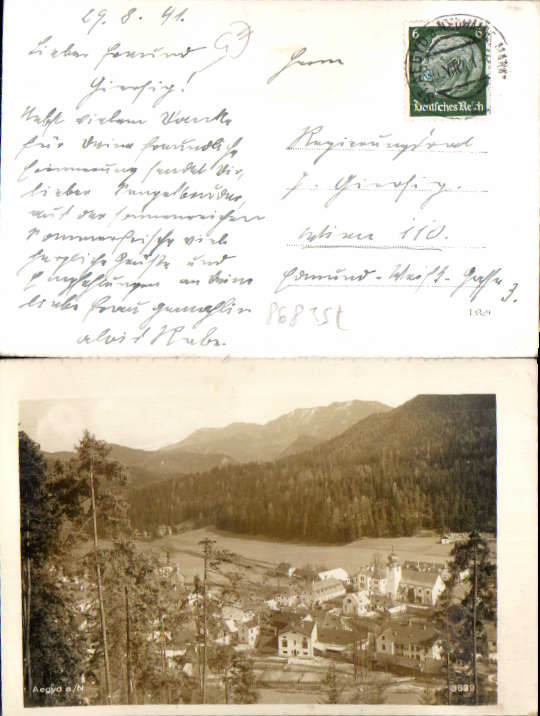 29. 8. 41.
Lieber Freund
Giersig!
Nebst vielem Danke
für Deine freundliche
Erinnerung sendet Dir,
lieber
aus der sonnenreichen
Sommerfrische viele
herzliche Grüße und
Empfehlungen an Deine
liebe Frau Gemahlin
Alois
Herrn
Regierungsrat
J. Giersig.
Wien 110.
Edmund-Weiß-Gasse
3.
6 6
Deutsches Reich
868352
Aegyd a./N
3639